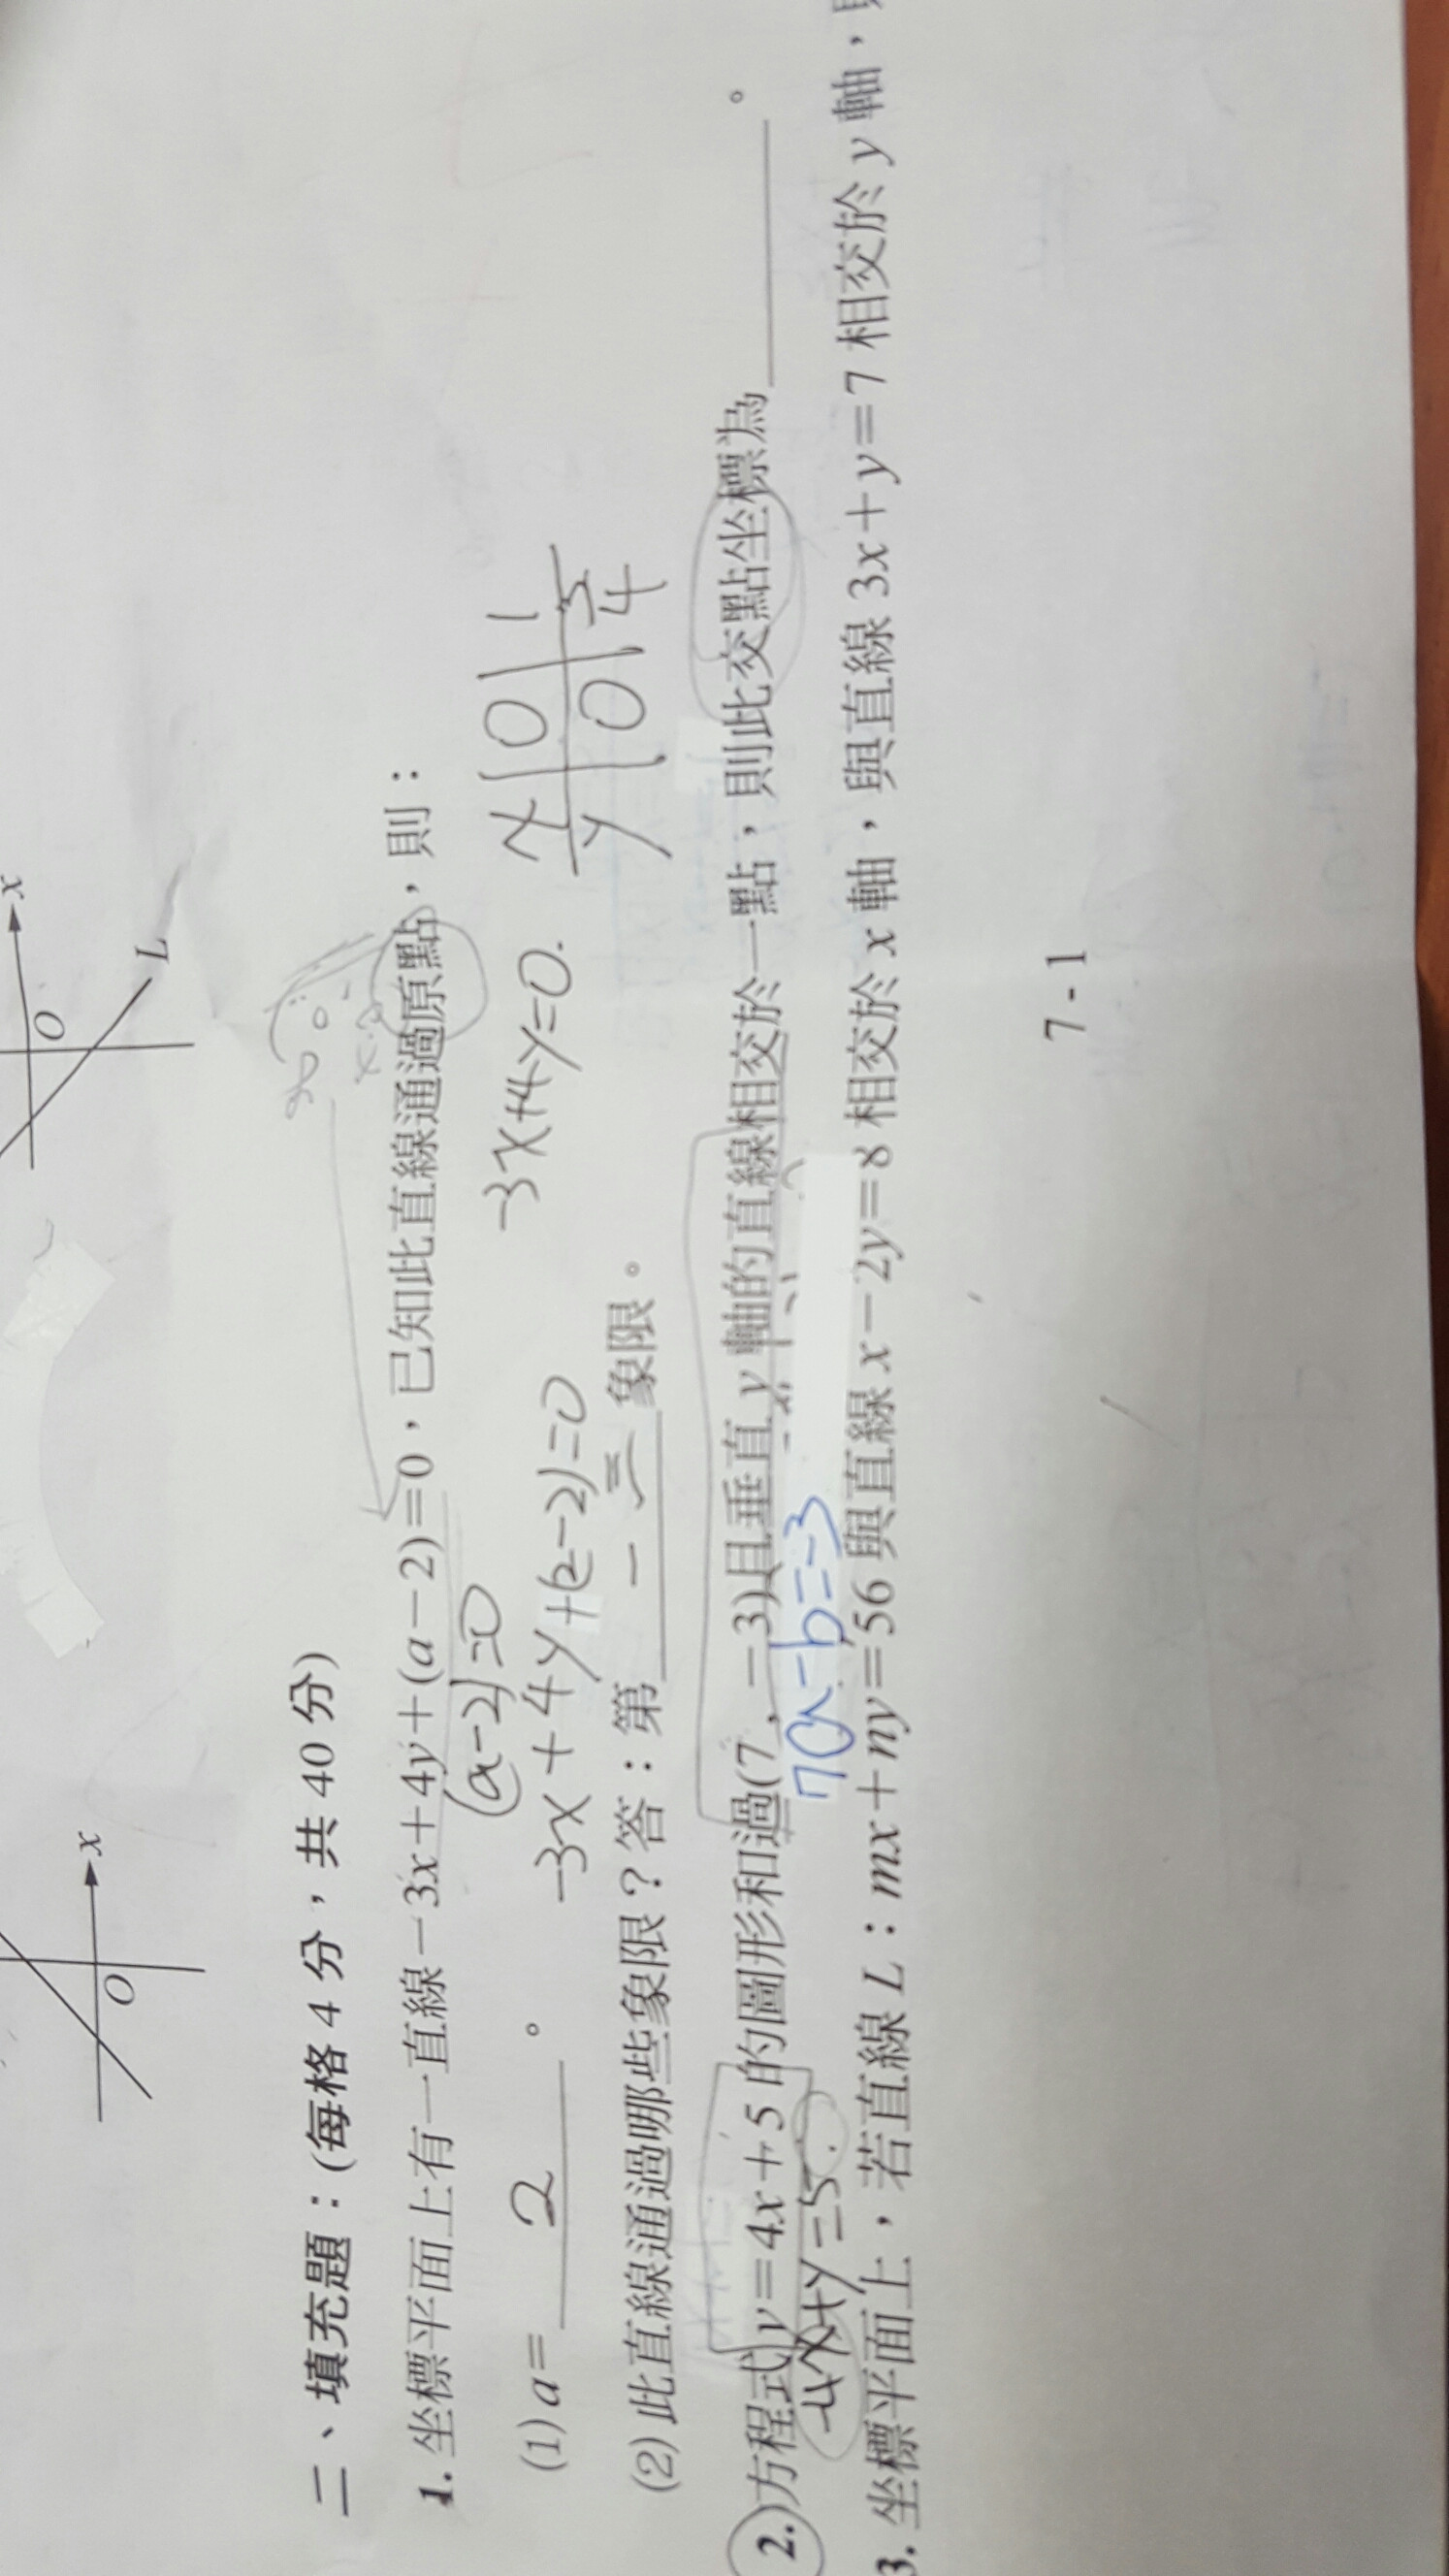 x
O
x
O
L
二、填充題：(每格 4 分，共 40 分)
1. 坐標平面上有一直線－3x＋4y＋(a－2)＝0，已知此直線通過原點，則：
(a-2)=0
(1) a＝ 2 。
-3x+4y+(2-2)=0
-3x+4y=0.
x 0 1
y 0
(2) 此直線通過哪些象限？答：第 一 、三 象限。
2. 方程式 y＝4x＋5 的圖形和過(7，－3)且垂直 y 軸的直線相交於一點，則此交點坐標為 。
-4x+y=5.
7a-b=-3
3. 坐標平面上，若直線 L：mx＋ny＝56 與直線 x－2y＝8 相交於 x 軸，與直線 3x＋y＝7 相交於 y 軸，
7 - 1